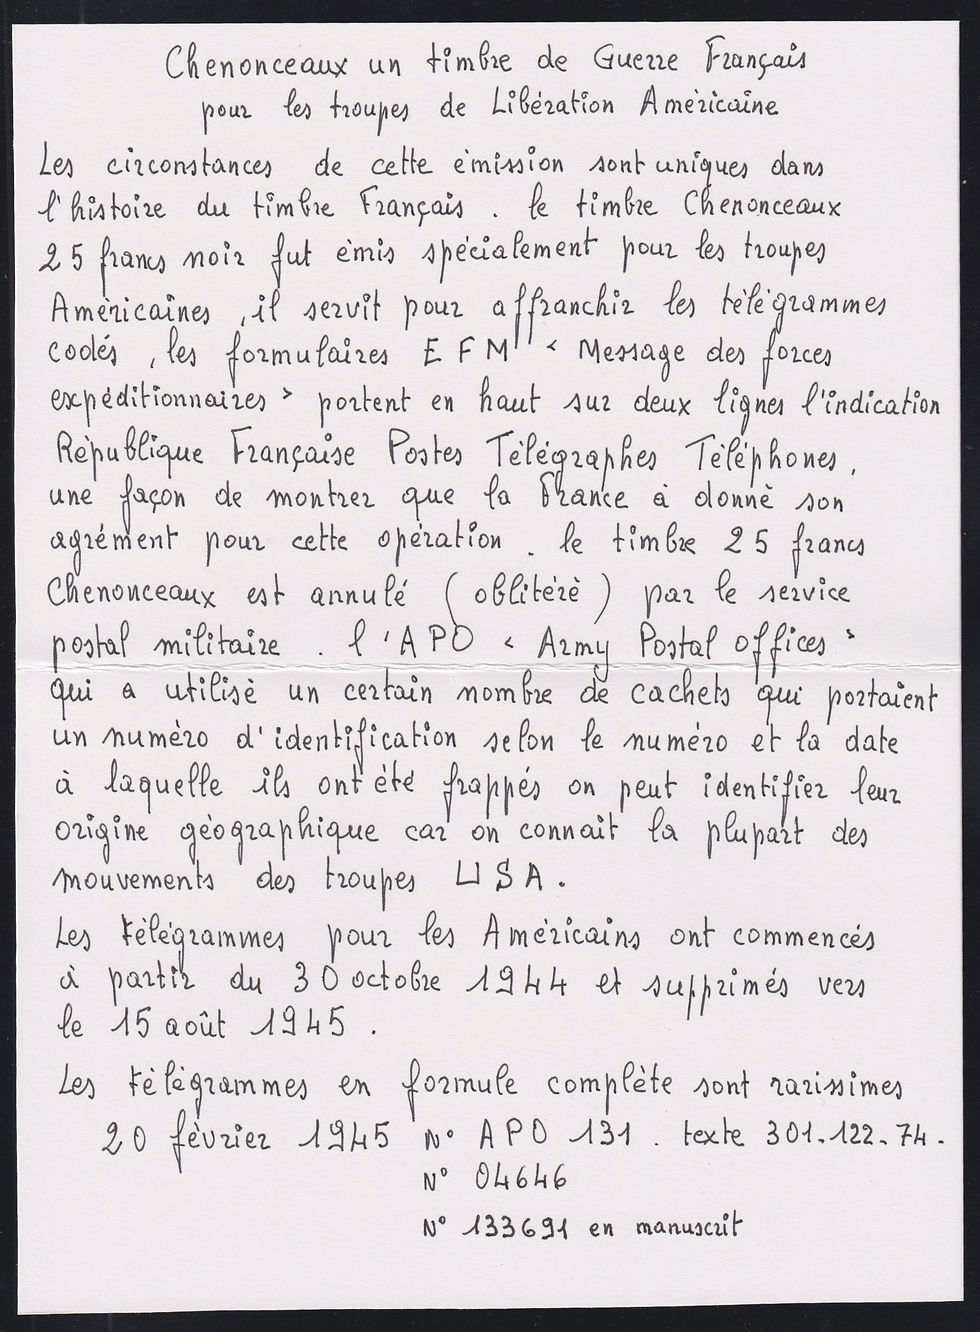 Chenonceaux un timbre de Guerre Français
pour les troupes de Libération Américaine
Les circonstances de cette émission sont uniques dans
l'histoire du timbre Français . le timbre Chenonceaux
25 francs noir fut émis spécialement pour les troupes
Américaines , il servit pour affranchir les télégrammes
codés , les formulaires E F M " < Message des forces
expéditionnaires > portent en haut sur deux lignes l'indication
République Française Postes Télégraphes Téléphones ,
une façon de montrer que la France à donné son
agrément pour cette opération . le timbre 25 francs
Chenonceaux est annulé ( oblitéré ) par le service
postal militaire . l'APO < Army Postal offices >
qui a utilisé un certain nombre de cachets qui portaient
un numéro d'identification selon le numéro et la date
à laquelle ils ont été frappés on peut identifier leur
origine géographique car on connait la plupart des
mouvements des troupes USA .
Les télégrammes pour les Américains ont commencés
à partir du 30 octobre 1944 et supprimés vers
le 15 août 1945 .
Les télégrammes en formule complète sont rarissimes
20 février 1945 N° APO 131 . texte 301.122.74.
N° 04646
N° 133691 en manuscrit